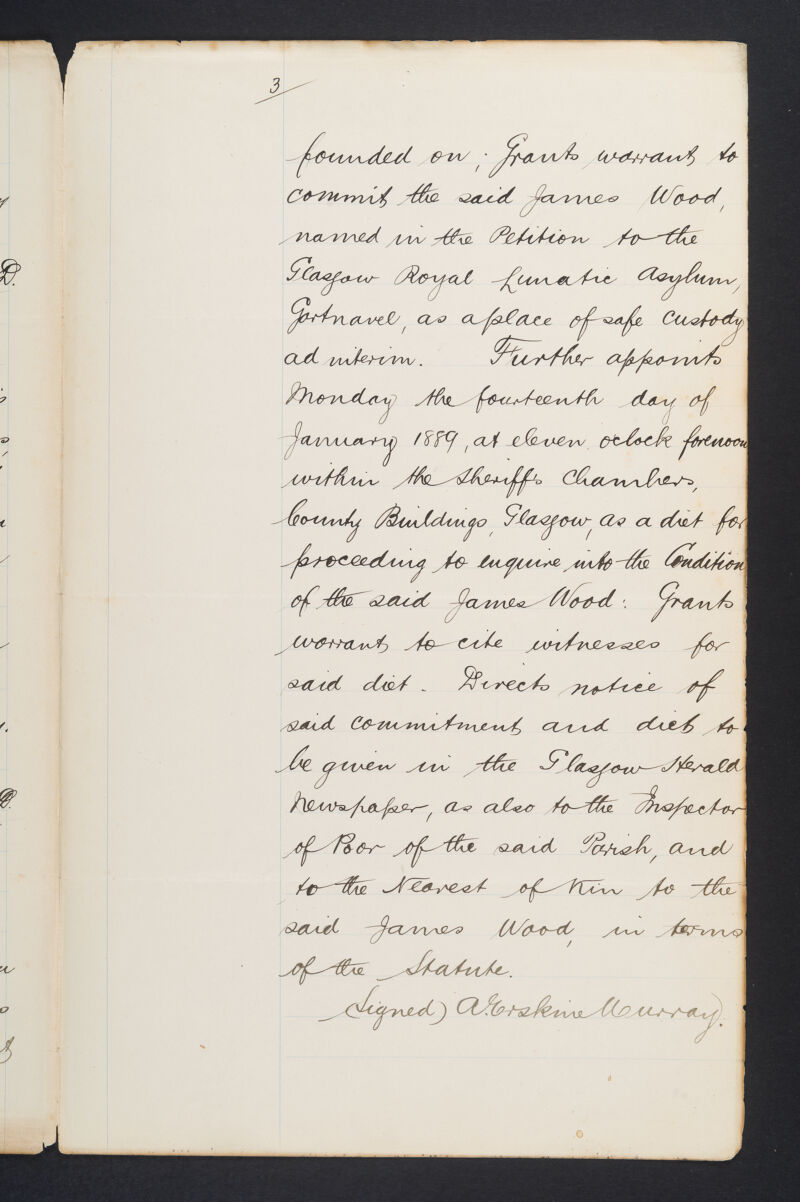 3
founded on; Grants warrant to
commit the said James Wood,
named in the Petition to the
Glasgow Royal Lunatic Asylum,
Gartnavel, as a place of safe custody
ad interim. Further appoints
Monday the fourteenth day of
January 1889, at eleven oclock forenoon
within the Sheriff's Chambers,
County Buildings, Glasgow, as a diet for
proceeding to enquire into the Condition
of the said James Wood: Grants
warrant to cite witnesses for
said diet. Directs notice of
said commitment and diet to
be given in the Glasgow Herald
Newspaper, as also to the Inspector
of Poor of the said Parish, and
to the Nearest of Kin to the
said James Wood, in terms
of the Statute.
(Signed) A. Erskine Murray.